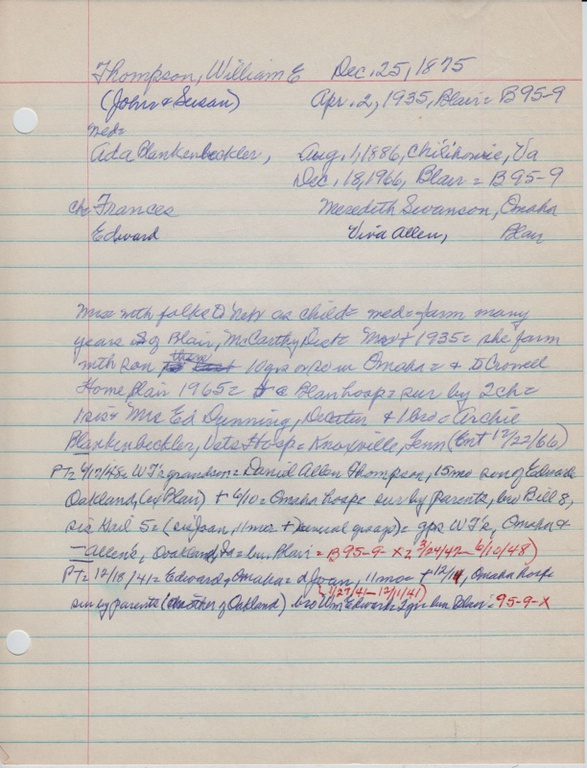 Thompson, William E Dec. 25, 1875
(John & Susan) Apr. 2, 1935, Blair = B95-9
med=
Ada Blankenbeckler, Aug. 1, 1886, Chilihowie, Va
Dec, 18, 1966, Blair = B95-9
ch= Frances Meredith Swanson, Omaha
Edward Viva Allen, Blair
Mrs= with folks to Neb as child= med= farm many
years So of Blair, McCarthy Dist= Mr + 1935= she farm
with son then 10 yrs or so in Omaha= & to Crowell
Home Blair 1965= @ Blair hosp= sur by 2 ch=
1 sis= Mrs Ed Dunning, Decatur & 1 bro= Archie
Blankenbeckler, Vets Hosp= Knoxville, Tenn (Ent 12/22/66)
PT= WT's grandson= Daniel Allen Thompson, 15 mo son of Edwards
Oakland, (ex Blair) + 6/10= Omaha hosp= sur by parents, bro Bill 8,
sis 5= (sis Joan, 11 mos + )= gps WT's, Omaha &
Allen's, Oakland, = bu. Blair = B95-9-X= 3/24/47- 6/10/48)
PT= 12/18/41= Edwards, Omaha= d Joan, 11 mo= + 12/11, Omaha hosp=
(1/27/41-12/11/41)
sur by parents ( of Oakland) bro Wm Edward= 2 yr= bu. Blair= 95-9-X